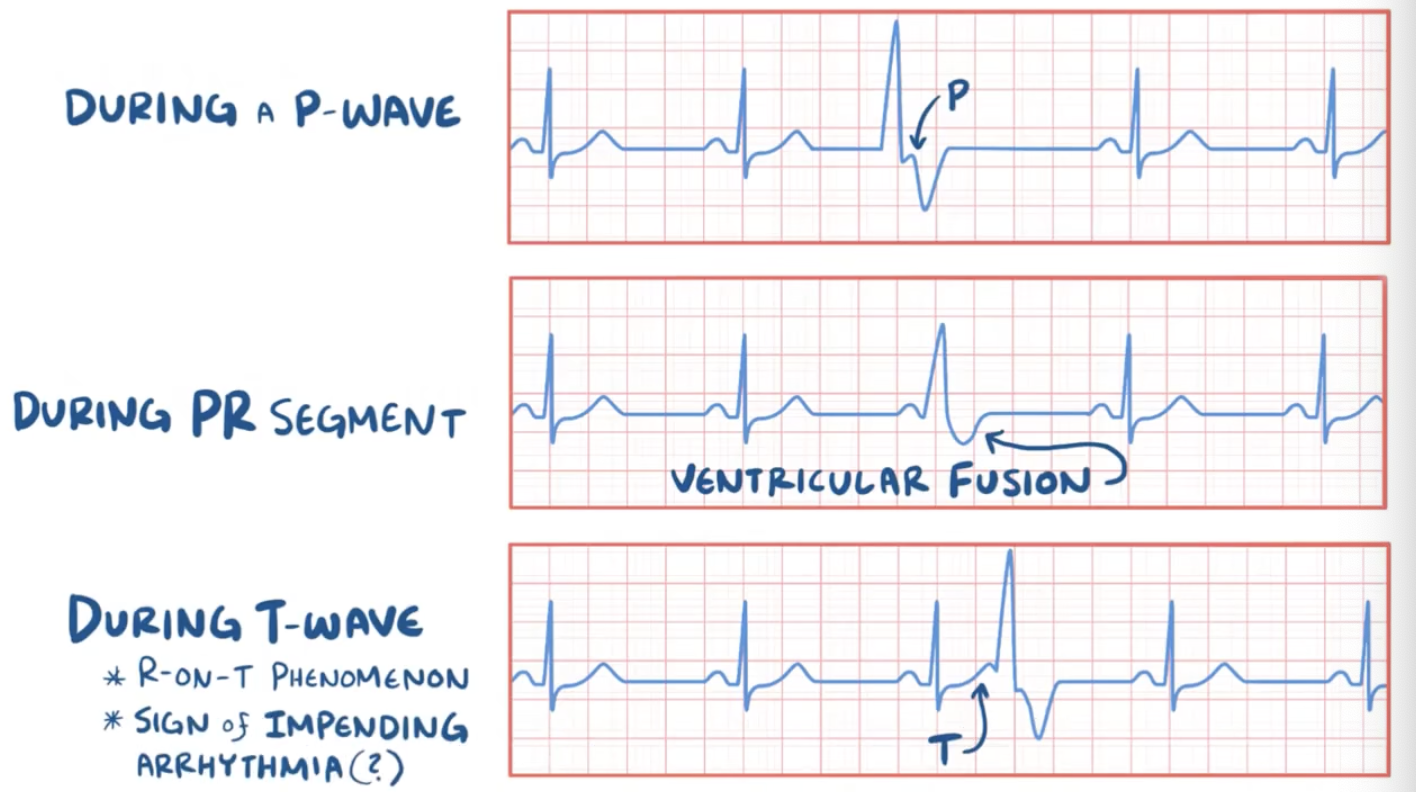 DURING A P-WAVE
P
DURING PR SEGMENT
VENTRICULAR FUSION
DURING T-WAVE
* R-ON-T PHENOMENON
* SIGN of IMPENDING
ARRHYTHMIA (?)
T